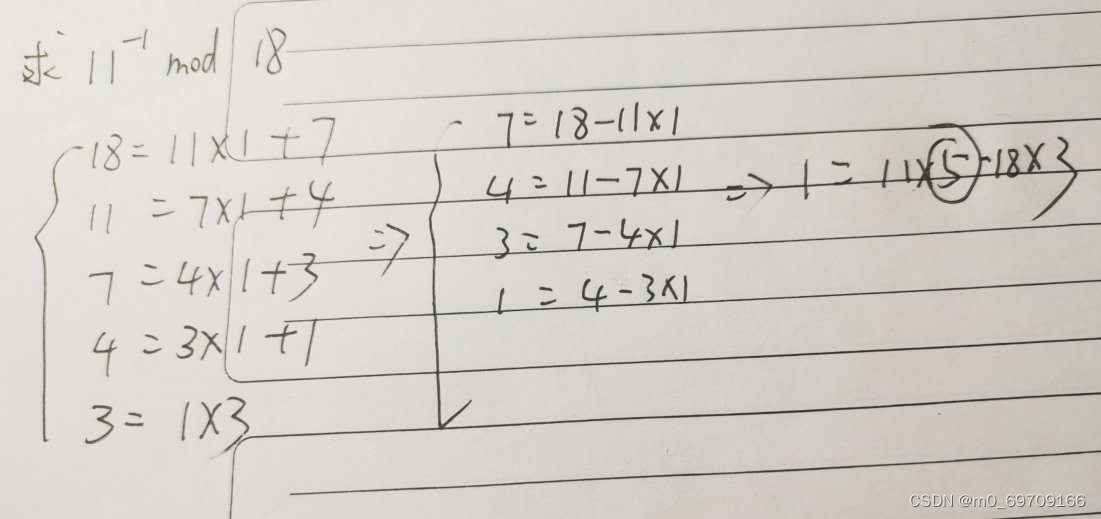 求 11⁻¹ mod 18
18 = 11×1 + 7
11 = 7×1 + 4
7 = 4×1 + 3
4 = 3×1 + 1
3 = 1×3
=>
7 = 18 - 11×1
4 = 11 - 7×1
3 = 7 - 4×1
1 = 4 - 3×1
=> 1 = 11×5 - 18×3
CSDN @m0_69709166